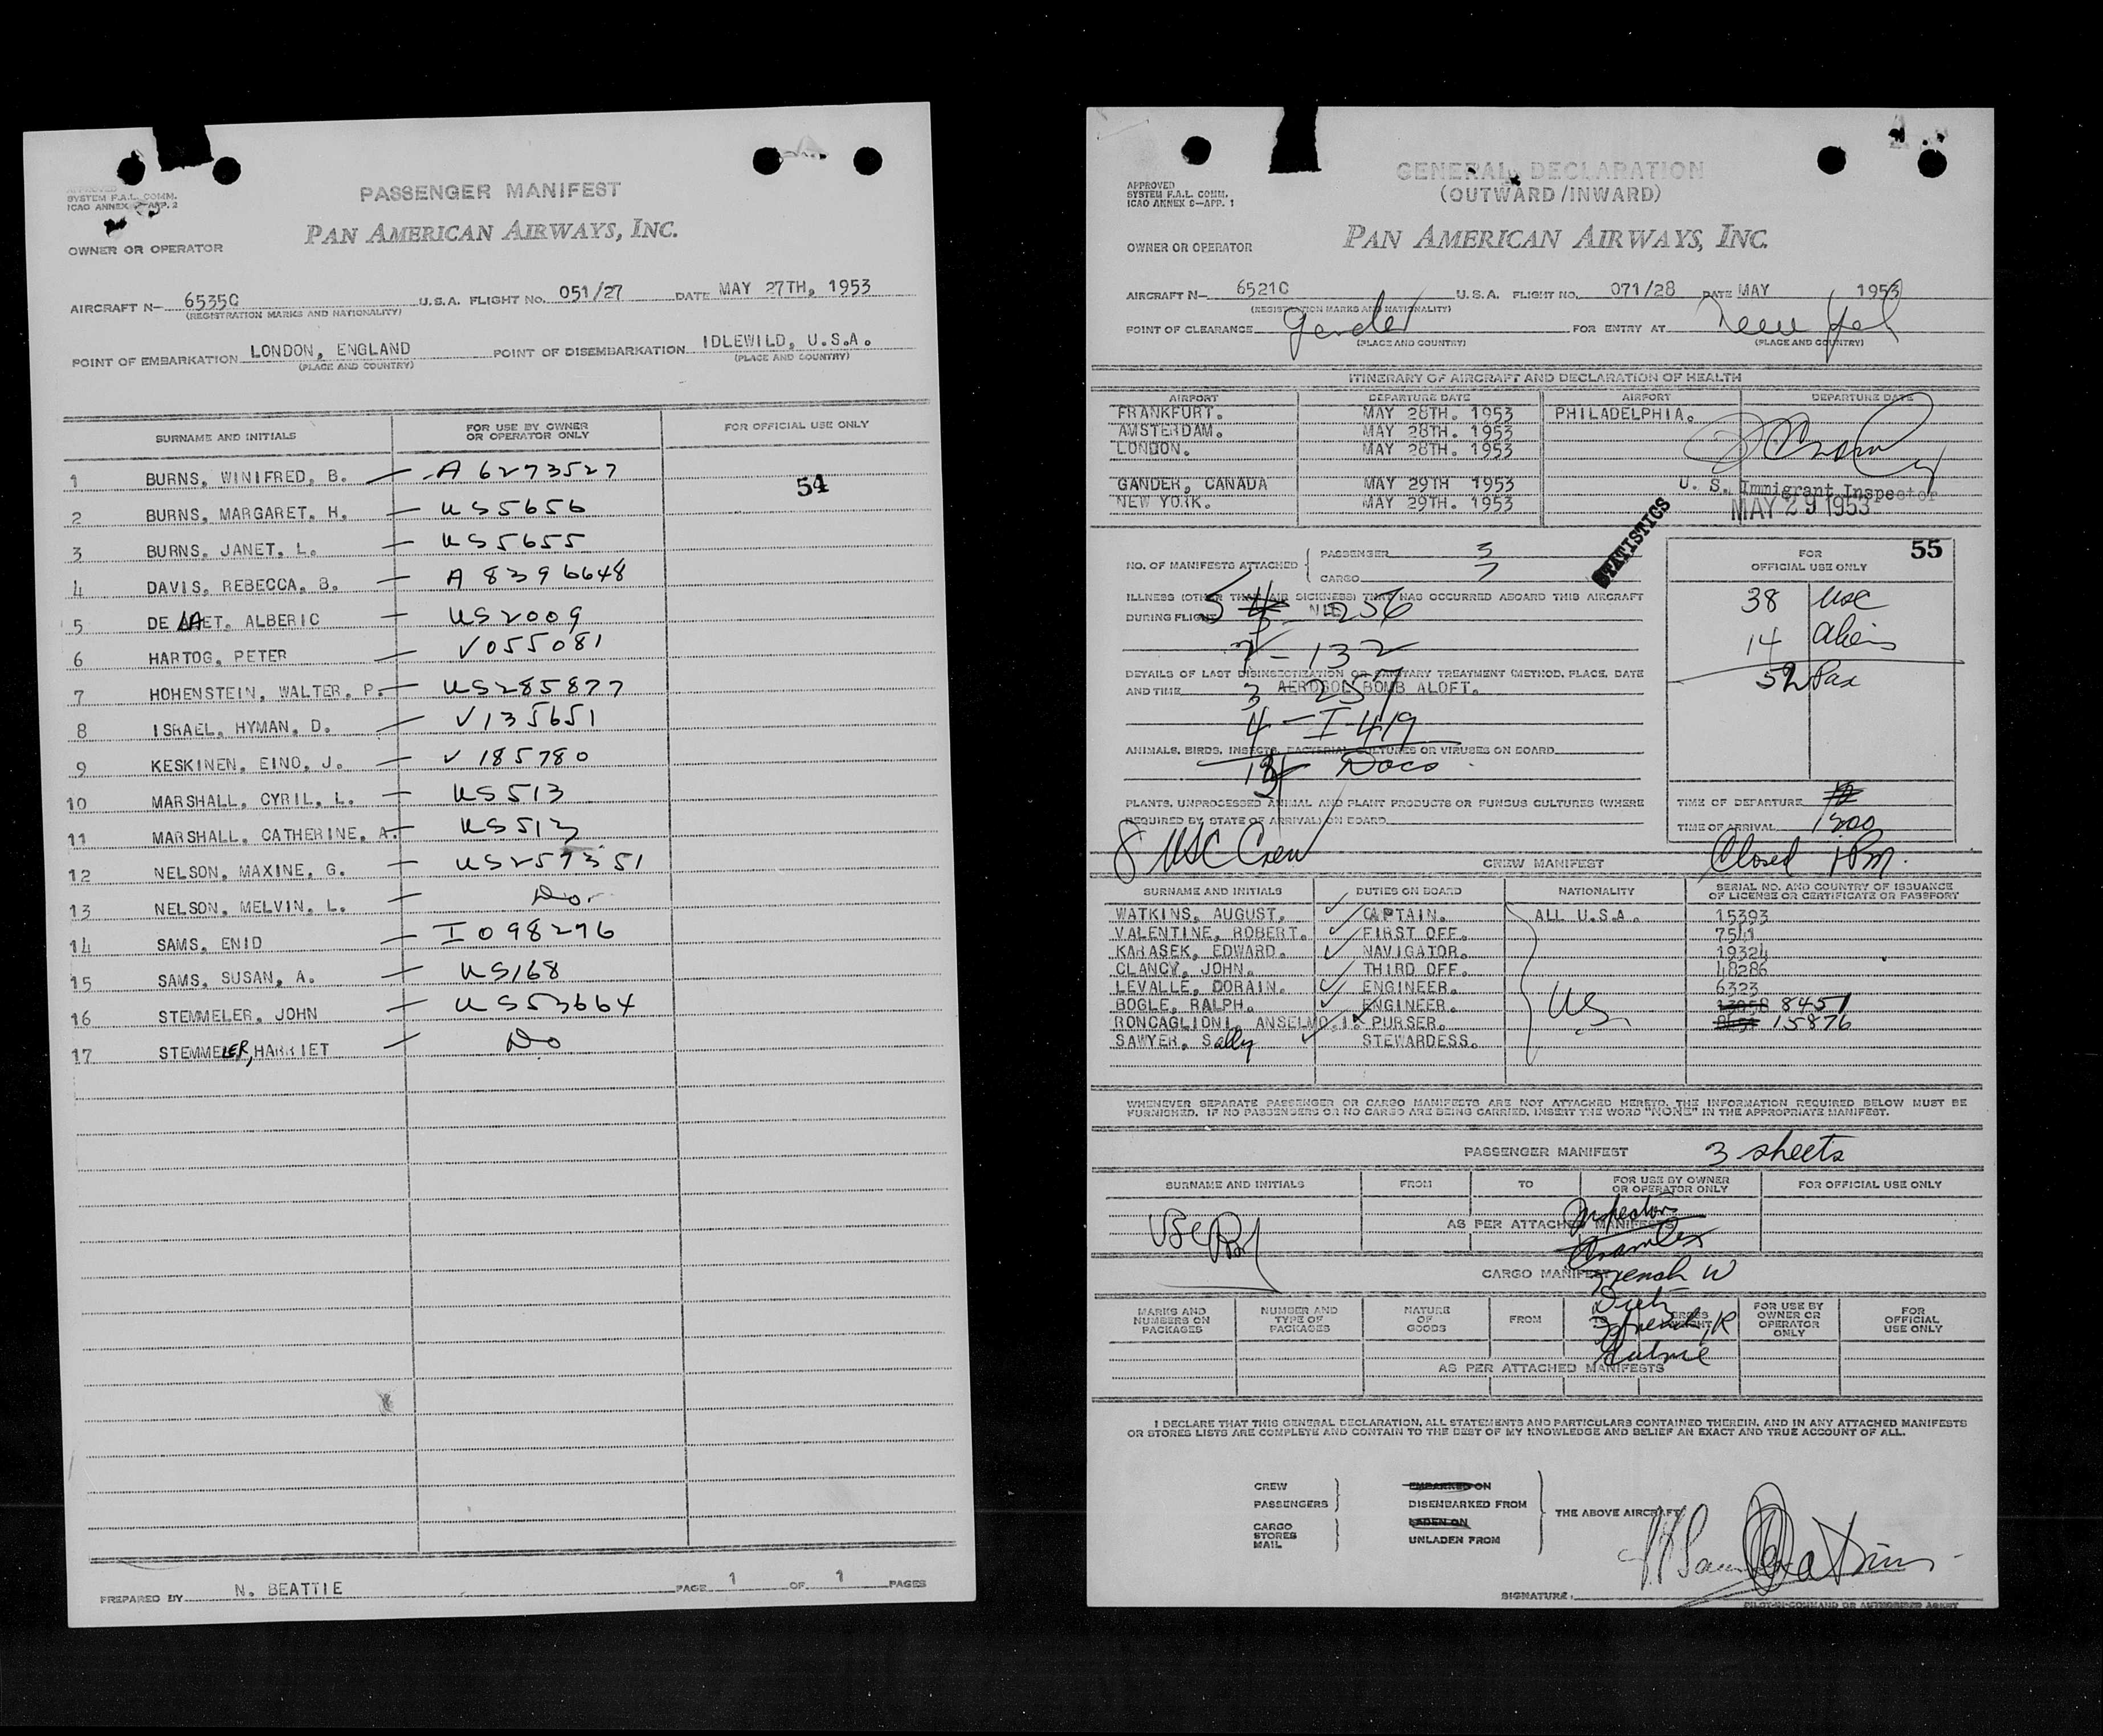 APPROVED
SYSTEM F.A.L. COMM.
ICAO ANNEX 9—APP. 2
PASSENGER MANIFEST
OWNER OR OPERATOR
PAN AMERICAN AIRWAYS, INC.
AIRCRAFT N— 6535C U.S.A. FLIGHT NO. 051/27 DATE MAY 27TH, 1953
(REGISTRATION MARKS AND NATIONALITY)
POINT OF EMBARKATION LONDON, ENGLAND POINT OF DISEMBARKATION IDLEWILD, U.S.A.
(PLACE AND COUNTRY) (PLACE AND COUNTRY)
SURNAME AND INITIALS FOR USE BY OWNER OR OPERATOR ONLY FOR OFFICIAL USE ONLY
54
1 BURNS, WINIFRED, B. — A 6273527
2 BURNS, MARGARET, H. — US5656
3 BURNS, JANET, L. — US5655
4 DAVIS, REBECCA, B. — A 8396648
5 DE LAET, ALBERIC — US2009
6 HARTOG, PETER — V055081
7 HOHENSTEIN, WALTER, P. — US285877
8 ISRAEL, HYMAN, D. — V135651
9 KESKINEN, EINO, J. — V 185780
10 MARSHALL, CYRIL, L. — US513
11 MARSHALL, CATHERINE, A. — US513
12 NELSON, MAXINE, G. — US257351
13 NELSON, MELVIN, L. — Do.
14 SAMS, ENID — I098276
15 SAMS, SUSAN, A. — US168
16 STEMMELER, JOHN — US53664
17 STEMMELER, HARRIET — Do
PREPARED BY N. BEATTIE PAGE 1 OF 1 PAGES
APPROVED
SYSTEM F.A.L. COMM.
ICAO ANNEX 9—APP. 1
GENERAL DECLARATION
(OUTWARD/INWARD)
OWNER OR OPERATOR
PAN AMERICAN AIRWAYS, INC.
AIRCRAFT N— 6521C U.S.A. FLIGHT NO. 071/28 DATE MAY 1953
(REGISTRATION MARKS AND NATIONALITY)
POINT OF CLEARANCE Gander FOR ENTRY AT New York
(PLACE AND COUNTRY) (PLACE AND COUNTRY)
ITINERARY OF AIRCRAFT AND DECLARATION OF HEALTH
AIRPORT DEPARTURE DATE AIRPORT DEPARTURE DATE
FRANKFURT. MAY 28TH. 1953 PHILADELPHIA.
AMSTERDAM. MAY 28TH. 1953
LONDON. MAY 28TH. 1953
GANDER, CANADA MAY 29TH 1953
NEW YORK. MAY 29TH. 1953
U. S. Immigrant Inspector
MAY 29 1953
STATISTICS
NO. OF MANIFESTS ATTACHED
PASSENGER 3
CARGO 7
ILLNESS (OTHER THAN AIR SICKNESS) THAT HAS OCCURRED ABOARD THIS AIRCRAFT
DURING FLIGHT NIL 256
7 - 132
DETAILS OF LAST DISINSECTIZATION OR SANITARY TREATMENT (METHOD, PLACE, DATE
AND TIME AEROSOL BOMB ALOFT.
3 257
4 - I-419
ANIMALS, BIRDS, INSECTS, BACTERIAL CULTURES OR VIRUSES ON BOARD
Docs
PLANTS, UNPROCESSED ANIMAL AND PLANT PRODUCTS OR FUNGUS CULTURES (WHERE
REQUIRED BY STATE OF ARRIVAL) ON BOARD
8 USC Crew
FOR OFFICIAL USE ONLY
55
38 USC
14 Aliens
52 Pax
TIME OF DEPARTURE
TIME OF ARRIVAL 1200
Closed 1PM.
CREW MANIFEST
SURNAME AND INITIALS DUTIES ON BOARD NATIONALITY SERIAL NO. AND COUNTRY OF ISSUANCE OF LICENSE OR CERTIFICATE OR PASSPORT
WATKINS, AUGUST. CAPTAIN. ALL U.S.A. 15393
VALENTINE, ROBERT. FIRST OFF. 7541
KARASEK, EDWARD. NAVIGATOR. 19324
CLANCY, JOHN. THIRD OFF. 48286
LEVALLE, DORAIN. ENGINEER. 6323
BOGLE, RALPH. ENGINEER. US 8451
RONCAGLIONI, ANSELMO.I. PURSER. 15876
SAWYER, Sally STEWARDESS.
WHENEVER SEPARATE PASSENGER OR CARGO MANIFESTS ARE NOT ATTACHED HERETO, THE INFORMATION REQUIRED BELOW MUST BE
FURNISHED. IF NO PASSENGERS OR NO CARGO ARE BEING CARRIED, INSERT THE WORD "NONE" IN THE APPROPRIATE MANIFEST.
PASSENGER MANIFEST 3 sheets
SURNAME AND INITIALS FROM TO FOR USE BY OWNER OR OPERATOR ONLY FOR OFFICIAL USE ONLY
Inspectors
AS PER ATTACHED MANIFESTS
CARGO MANIFEST
French W
MARKS AND NUMBERS ON PACKAGES NUMBER AND TYPE OF PACKAGES NATURE OF GOODS FROM TO GROSS WEIGHT FOR USE BY OWNER OR OPERATOR ONLY FOR OFFICIAL USE ONLY
French, R
AS PER ATTACHED MANIFESTS
I DECLARE THAT THIS GENERAL DECLARATION, ALL STATEMENTS AND PARTICULARS CONTAINED THEREIN, AND IN ANY ATTACHED MANIFESTS
OR STORES LISTS ARE COMPLETE AND CONTAIN TO THE BEST OF MY KNOWLEDGE AND BELIEF AN EXACT AND TRUE ACCOUNT OF ALL.
CREW
PASSENGERS
CARGO
STORES
MAIL
EMBARKED ON
DISEMBARKED FROM
LADEN ON
UNLADEN FROM
THE ABOVE AIRCRAFT
SIGNATURE.
PILOT-IN-COMMAND OR AUTHORISED AGENT